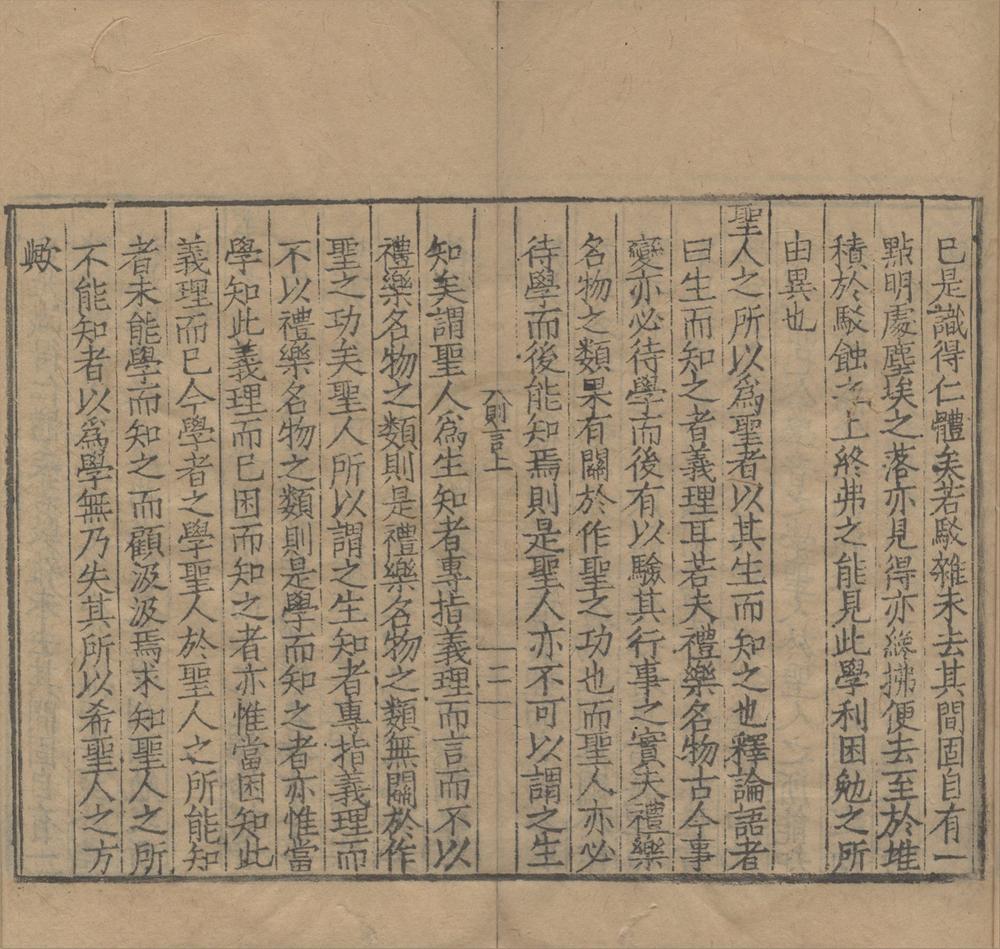 已是識得仁體矣若駁雜未去其間固自有一
點明處塵埃之落亦見得亦纔拂便去至於堆
積於駁蝕之上終弗之能見此學利困勉之所
由異也
聖人之所以爲聖者以其生而知之也釋論語者
曰生而知之者義理耳若夫禮樂名物古今事
變亦必待學而後有以驗其行事之實夫禮樂
名物之類果有關於作聖之功也而聖人亦必
待學而後能知焉則是聖人亦不可以謂之生
則言上 二
知矣謂聖人爲生知者專指義理而言而不以
禮樂名物之類則是禮樂名物之類無關於作
聖之功矣聖人所以謂之生知者專指義理而
不以禮樂名物之類則是學而知之者亦惟當
學知此義理而已困而知之者亦惟當困知此
義理而已今學者之學聖人於聖人之所能知
者未能學而知之而顧汲汲焉求知聖人之所
不能知者以爲學無乃失其所以希聖人之方
歟